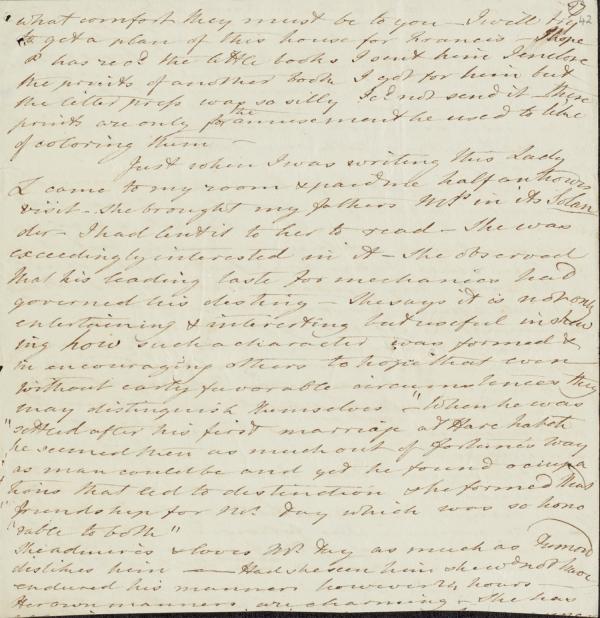 42
what comfort they must be to you – I will try
to get a plan of this house for Francis – I hope
he has recd the little books I sent him I enclose
the prints of another book I got for him but
the letter press was so silly I cd not send it – these
prints are only for the amusement he used to like
of coloring them –
Just when I was writing this Lady
L came to my room & paid me half an hours
visit – She brought my fathers MSs in its Solan
der – I had lent it to her to read – She was
exceedingly interested in it – She observed
that his leading taste for mechanics had
governed his destiny – She says it is not only
entertaining & interesting but useful in shew
ing how such a character was formed &
in encouraging others to hope that even
without early favorable circumstances they
may distinguish themselves – "When he was
"settled after his first marriage at Hare hatch
he seemed then as much out of fortune's way
as man could be and yet he found occupa
tions that led to distinction & he formed that
"friendship for Mr. Day which was so hono
"rable to both"
She admires & loves Mr. Day as much as Dumont
dislikes him – Had she seen him she wd not have
endured his manners however 24 hours –
Her own manners are charming – She has